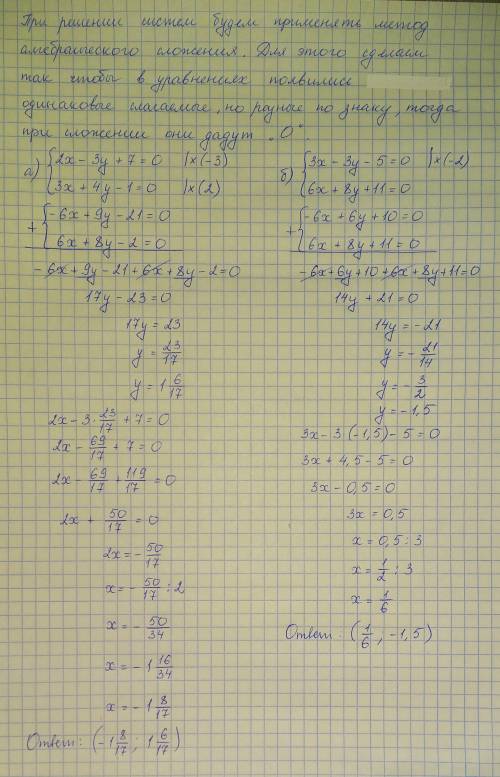 При решении систем будем применять метод
алгебраического сложения. Для этого сделаем
так чтобы в уравнениях появились
одинаковые слагаемые, но разные по знаку, тогда
при сложении они дадут „0".
а) { 2x - 3y + 7 = 0 |×(-3)
3x + 4y - 1 = 0 |×(2)
+ { -6x + 9y - 21 = 0
6x + 8y - 2 = 0
-6x + 9y - 21 + 6x + 8y - 2 = 0
17y - 23 = 0
17y = 23
y = 23/17
y = 1 6/17
2x - 3 · 23/17 + 7 = 0
2x - 69/17 + 7 = 0
2x - 69/17 + 119/17 = 0
2x + 50/17 = 0
2x = - 50/17
x = - 50/17 : 2
x = - 50/34
x = -1 16/34
x = -1 8/17
Ответ: (-1 8/17 ; 1 6/17)
б) { 3x - 3y - 5 = 0 |×(-2)
6x + 8y + 11 = 0
+ { -6x + 6y + 10 = 0
6x + 8y + 11 = 0
-6x + 6y + 10 + 6x + 8y + 11 = 0
14y + 21 = 0
14y = -21
y = - 21/14
y = - 3/2
y = -1,5
3x - 3·(-1,5) - 5 = 0
3x + 4,5 - 5 = 0
3x - 0,5 = 0
3x = 0,5
x = 0,5 : 3
x = 1/2 : 3
x = 1/6
Ответ: (1/6 ; -1,5)